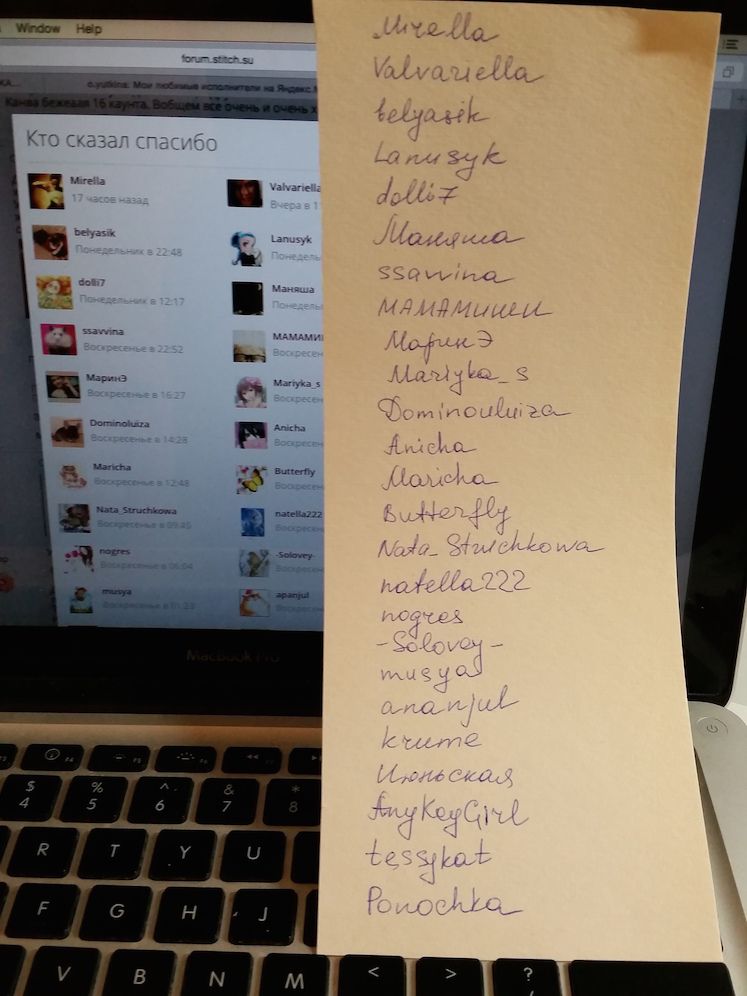 Window Help
forum.stitch.su
o.yutkina. Мои любимые исполнители на Яндекс.
Канва бежевая 16 каунта. Вобщем все очень и очень х
Кто сказал спасибо
Mirella
17 часов назад
Valvariella
Вчера в 1
belyasik
Понедельник в 22:48
Lanusyk
Понедель
dolli7
Понедельник в 12:17
Маняша
Понедель
ssavvina
Воскресенье в 22:52
МАМАМИ
Воскресен
МаринЭ
Воскресенье в 16:27
Mariyka_s
Воскресен
Dominoluiza
Воскресенье в 14:28
Anicha
Воскресен
Maricha
Воскресенье в 12:48
Butterfly
Воскресен
Nata_Struchkowa
Воскресенье в 09:45
natella222
Воскресен
nogres
Воскресенье в 06:04
-Solovey-
Воскресен
musya
Воскресенье в 01:23
apanjul
Воскресен
MacBook Pro
Mirella
Valvariella
belyasik
Lanusyk
dolli7
Маняша
ssavvina
МАМАМИНЕИ
МаринЭ
Mariyka_s
Dominouluiza
Anicha
Maricha
Butterfly
Nata_Struchkowa
natella222
nogres
-Solovey-
musya
ananjul
krume
Июньская
AnyKeyGirl
tessykat
Ponochka
F4 F5 F6 F7
$ % ^ & *
4 5 6 7 8
R T Y U
F G H J
V B N M < > ?